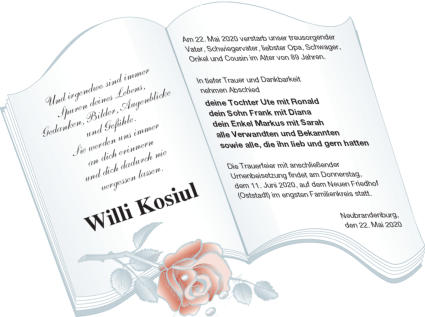 Und irgendwo sind immer
Spuren deines Lebens,
Gedanken, Bilder, Augenblicke
und Gefühle.
Sie werden uns immer
an dich erinnern
und dich dadurch nie
vergessen lassen.
Willi Kosiul
Am 22. Mai 2020 verstarb unser treusorgender
Vater, Schwiegervater, liebster Opa, Schwager,
Onkel und Cousin im Alter von 89 Jahren.
In tiefer Trauer und Dankbarkeit
nehmen Abschied
deine Tochter Ute mit Ronald
dein Sohn Frank mit Diana
dein Enkel Markus mit Sarah
alle Verwandten und Bekannten
sowie alle, die ihn lieb und gern hatten
Die Trauerfeier mit anschließender
Urnenbeisetzung findet am Donnerstag,
dem 11. Juni 2020, auf dem Neuen Friedhof
(Oststadt) im engsten Familienkreis statt.
Neubrandenburg,
den 22. Mai 2020